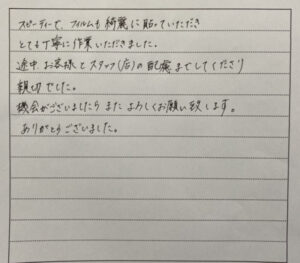 スピーディーで、フィルムも綺麗に貼っていただき
とても丁寧に作業いただきました。
途中お客様とスタッフ(店)の配慮までしてくださり
親切でした。
機会がございましたらまたよろしくお願い致します。
ありがとうございました。